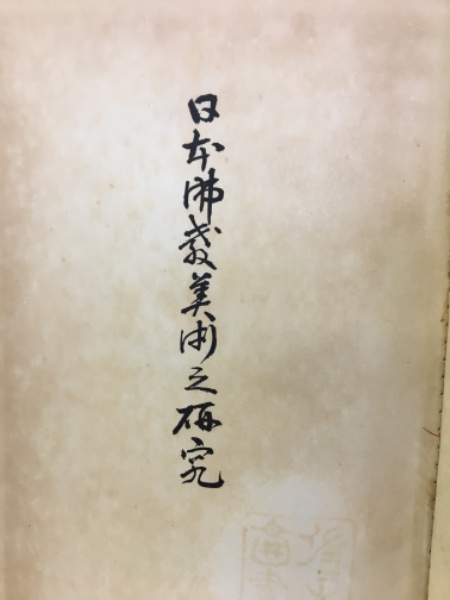 日本佛教美術之研究